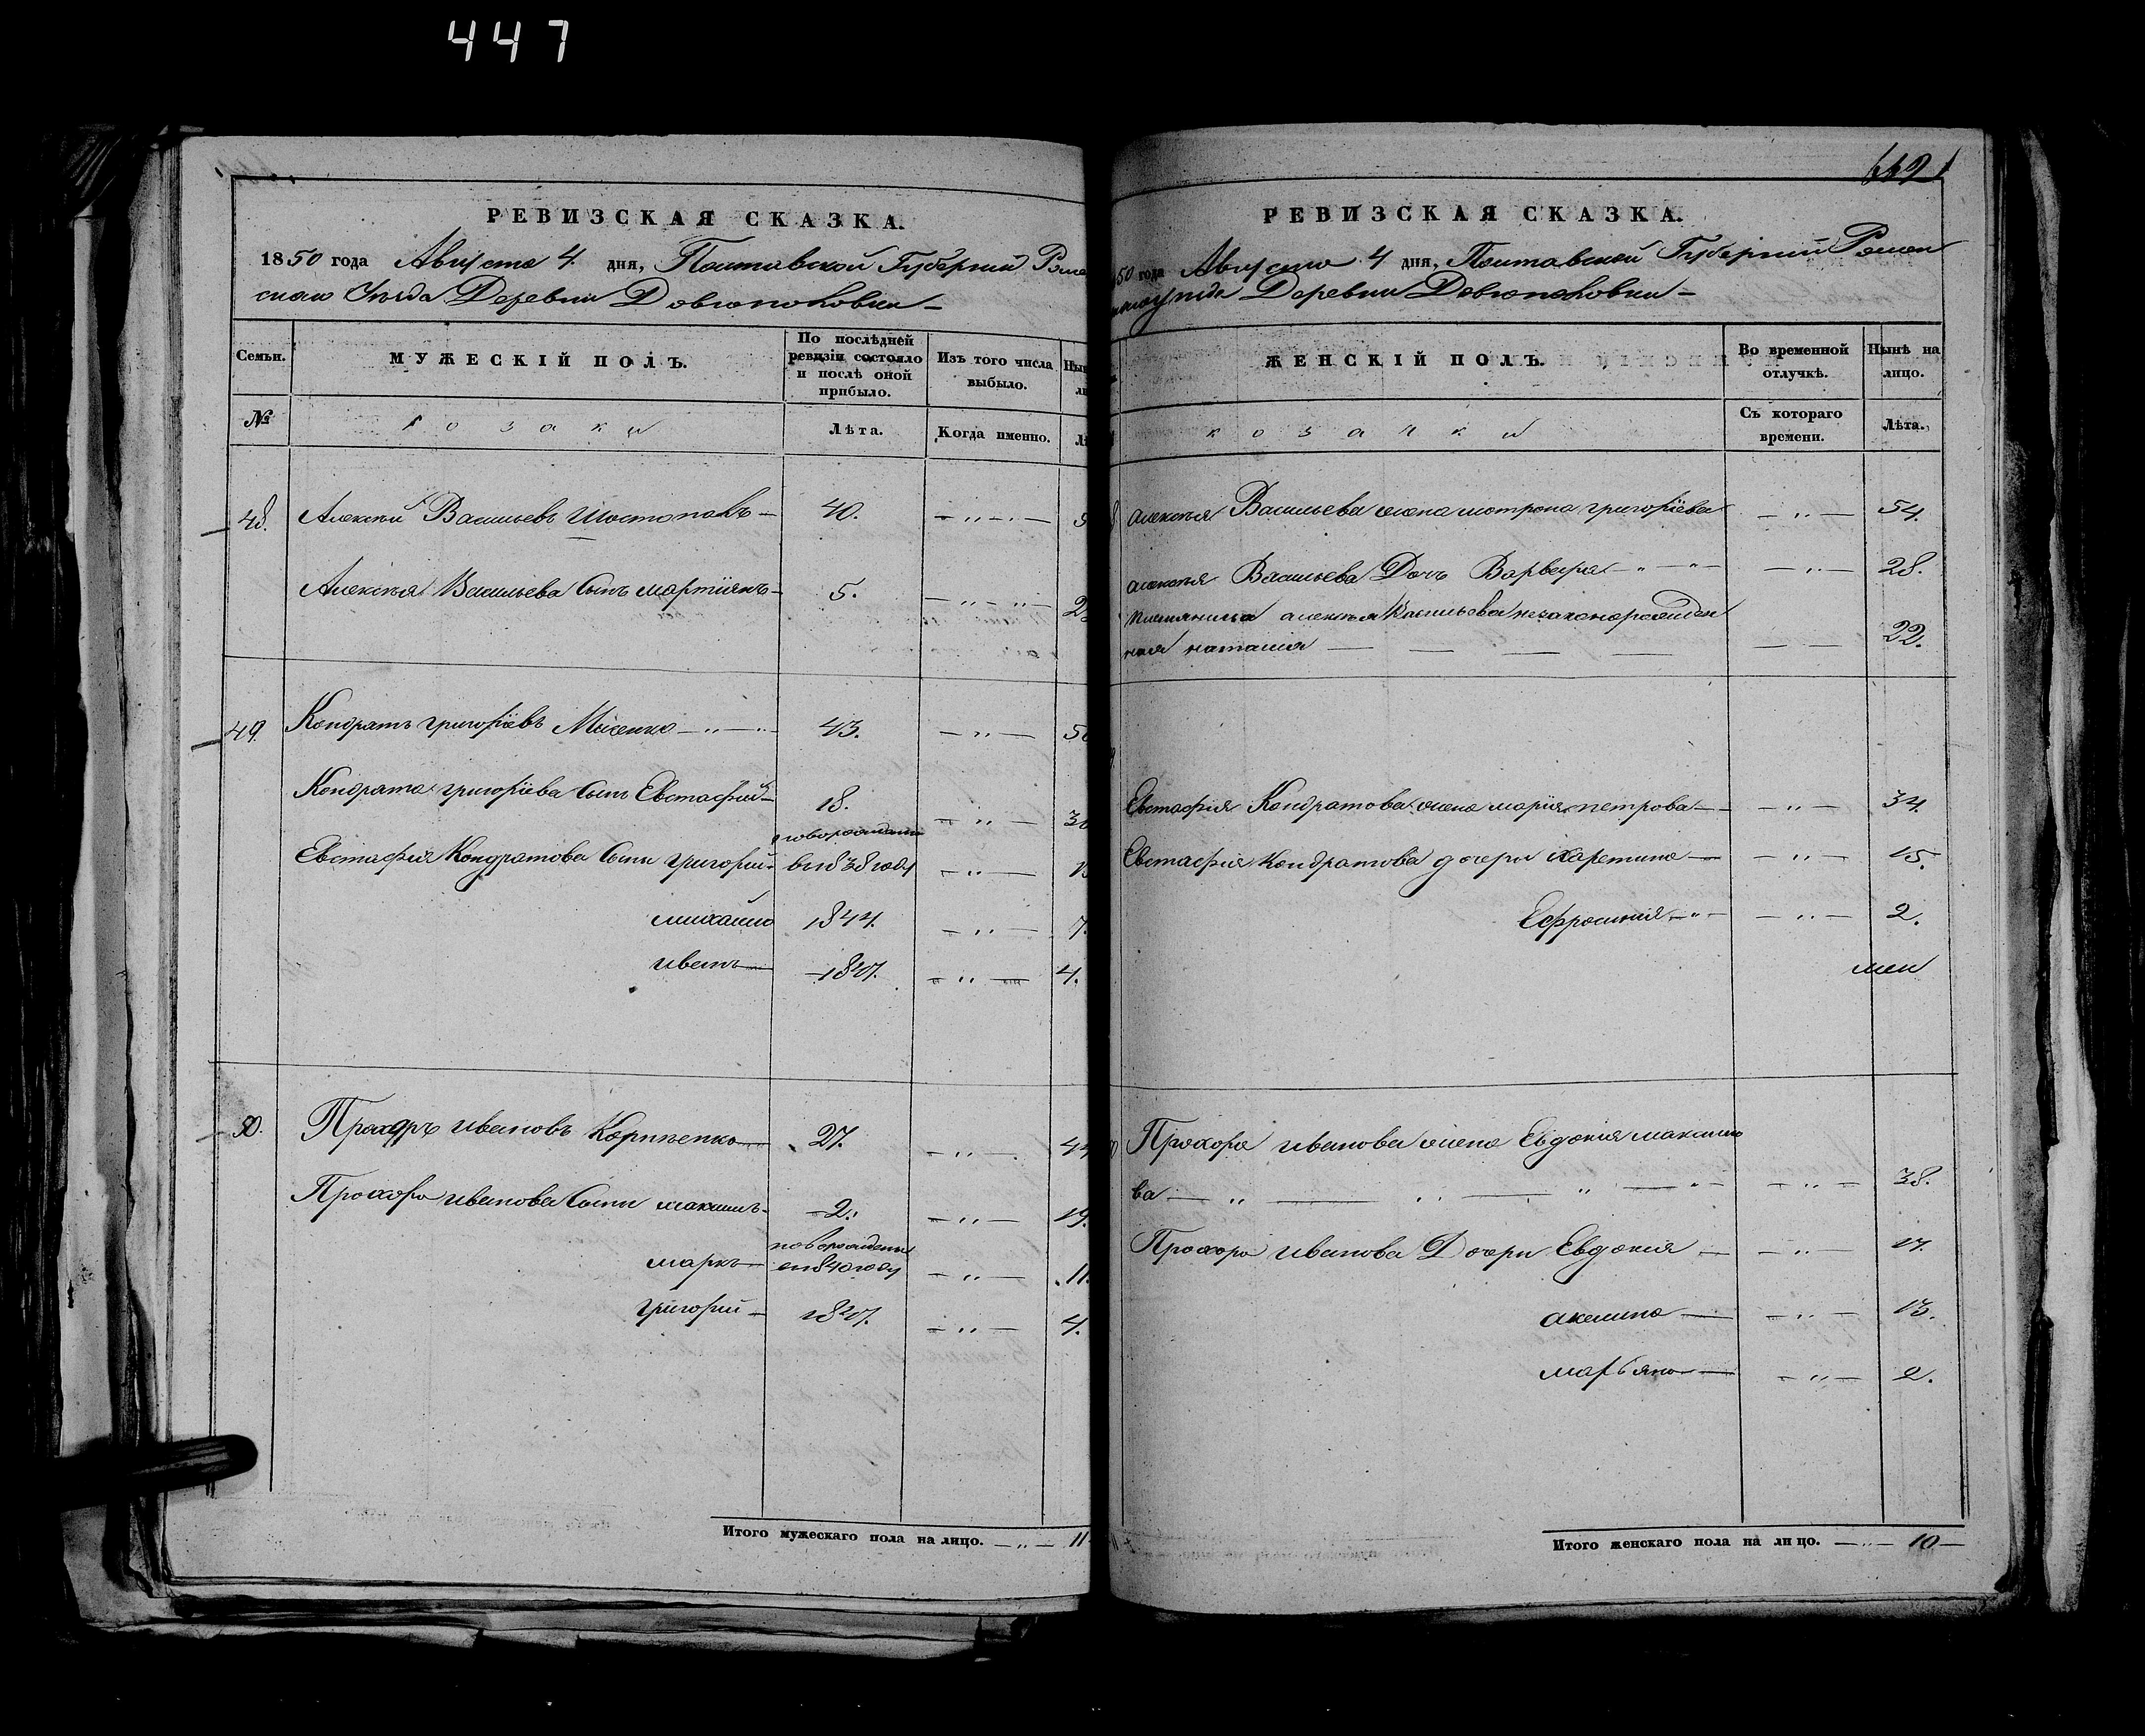 447
РЕВИЗСКАЯ СКАЗКА.
1850 года Августа 4. дня, Полтавской Губернии Роме
скаго Уезда Деревни
Семьи.
МУЖЕСКІЙ ПОЛЪ.
По послѣдней ревизіи состояло и послѣ оной прибыло.
Изъ того числа выбыло.
№
козаки
Лѣта.
Когда именно.
48. Алексѣй Васильевъ Шостопалъ — 40.
Алексѣя Васильева Сынъ Мартіянъ — 5.
49. Кондратъ григоріевъ — 43.
Кондрата григоріева Сынъ Евстафій — 18.
новорожденъ
Евстафія Кондратова Сыны григорій — въ 1838 году
михайло 1844. 7.
иванъ — 1847. 4.
50. Прохоръ ивановъ Корнѣенко — 27.
Прохора иванова Сыны максимъ — 2. 19.
новорожденъ
маркъ — въ 1840 году 11.
григорій — 1847. 4.
Итого мужескаго пола на лицо. — 11
РЕВИЗСКАЯ СКАЗКА.
50 года Августа 4 дня, Полтавской Губернии Ромен
уезда Деревни
ЖЕНСКІЙ ПОЛЪ.
Во временной отлучкѣ.
Нынѣ на лицо.
козачки
Съ котораго времени.
Лѣта.
алексѣя Васильева жена мотрона григоріева 54.
алексѣя Васильева Дочь Варвара — 28.
племянница алексѣя Васильева незаконорожден
ная наталия — 22.
Евстафія Кондратова жена марія петрова — 34.
Евстафія Кондратова дочери харетина — 15.
Ефросинія — 2.
Прохора иванова жена Евдокия максимо
ва — 38.
Прохора иванова Дочери Евдокия — 17.
акилина — 13.
марьяна — 2.
Итого женскаго пола на лицо. — 10 —